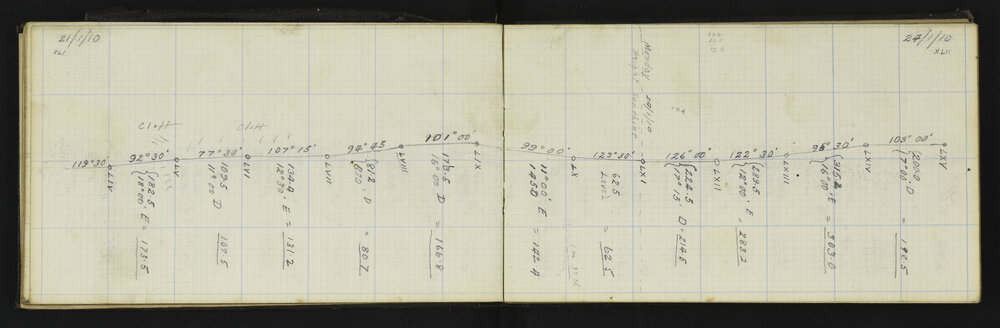 21/1/10
XLI
Cliff
Cliff
119°30'
LIV
92°30'
{182.5
{18°00' E = 173.5
LV
77°30'
109.5
11°00 D
107.5
LVI
107°15'
134.4
12°30' E = 131.2
LVII
94°45
{81.2
D = 80.7
LVIII
101°00'
173.5
16°00 D = 166.8
LIX
24/1/10
XLII
Monday 24/1/10
Bright Sunshine
124
99°00'
11°00' E = 142.4
LX
123°30'
62.5
Level = 62.5
LXI
126°00'
{224.5
{17°15' D = 214.5
LXII
122°30'
{289.5
{12°00' E = 283.2
LXIII
96°30'
{315.2
{16°00' E = 303.0
LXIV
103°00'
{200.0
D = 192.5
LXV